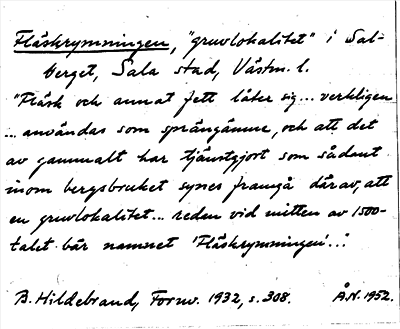 Fläskrymningen, "gruvlokalitet" i Sal-
berget, Sala stad, Västm. l.
"Fläsk och annat fett låter sig... verkligen
... användas som sprängämne, och att det
av gammalt har tjänstgjort som sådant
inom bergsbruket synes framgå därav, att
en gruvlokalitet... reden vid mitten av 1500-
talet bär namnet 'Fläskrymningen'..."
B. Hildebrand, Fornv. 1932, s. 308. Å.N. 1952.